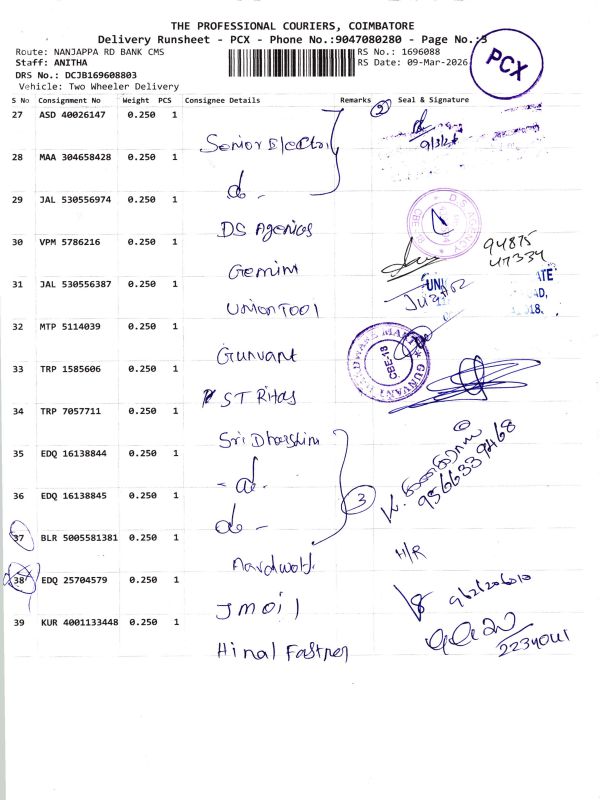 THE PROFESSIONAL COURIERS, COIMBATORE
Delivery Runsheet - PCX - Phone No.:9047080280 - Page No.:3
PCX
Route: NANJAPPA RD BANK CMS
RS No.: 1696088
Staff: ANITHA
RS Date: 09-Mar-2026
DRS No.: DCJB169608803
Vehicle: Two Wheeler Delivery
S No Consignment No Weight PCS Consignee Details Remarks Seal & Signature
27 ASD 40026147 0.250 1
2
9/3/26
Senior Electric
28 MAA 304658428 0.250 1
do -
29 JAL 530556974 0.250 1
DS Agencies
D.S AGENCY
30 VPM 5786216 0.250 1
94875
47334
Gemini
31 JAL 530556387 0.250 1
Union Tool
32 MTP 5114039 0.250 1
Gunvant
GUNVANT HARDWARE MART
CBE-18
33 TRP 1585606 0.250 1
34 TRP 7057711 0.250 1
Sri Dharshini
35 EDQ 16138844 0.250 1
- do -
9566339468
36 EDQ 16138845 0.250 1
3
do -
37 BLR 5005581381 0.250 1
H/R
Aardwolf
38 EDQ 25704579 0.250 1
JM Oil
39 KUR 4001133448 0.250 1
Hinal Fastner